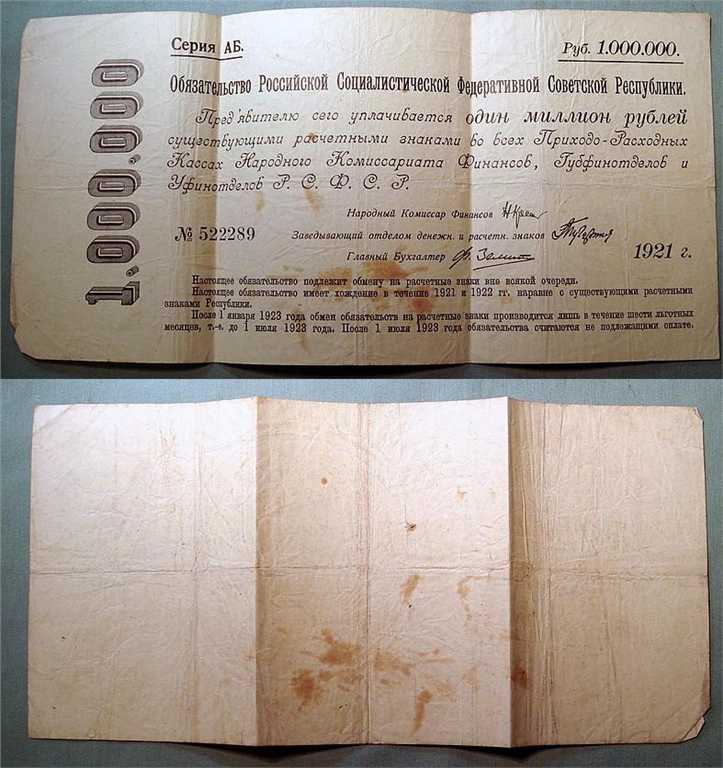 Серия АБ.
Руб. 1.000.000.
1.000.000
Обязательство Российской Социалистической Федеративной Советской Республики.
Пред'явителю сего уплачивается один миллион рублей
существующими расчетными знаками во всех Приходо-Расходных
Кассах Народного Комиссариата Финансов, Губфинотделов и
Уфинотделов Р. С. Ф. С. Р.
Народный Комиссар Финансов
№ 522289
Заведывающий отделом денежн. и расчетн. знаков
Главный Бухгалтер
1921 г.
Настоящее обязательство подлежит обмену на расчетные знаки вне всякой очереди.
Настоящее обязательство имеет хождение в течение 1921 и 1922 гг. наравне с существующими расчетными
знаками Республики.
После 1 января 1923 года обмен обязательств на расчетные знаки производится лишь в течение шести льготных
месяцев, т.-е. до 1 июля 1923 года. После 1 июля 1923 года обязательства считаются не подлежащими оплате.